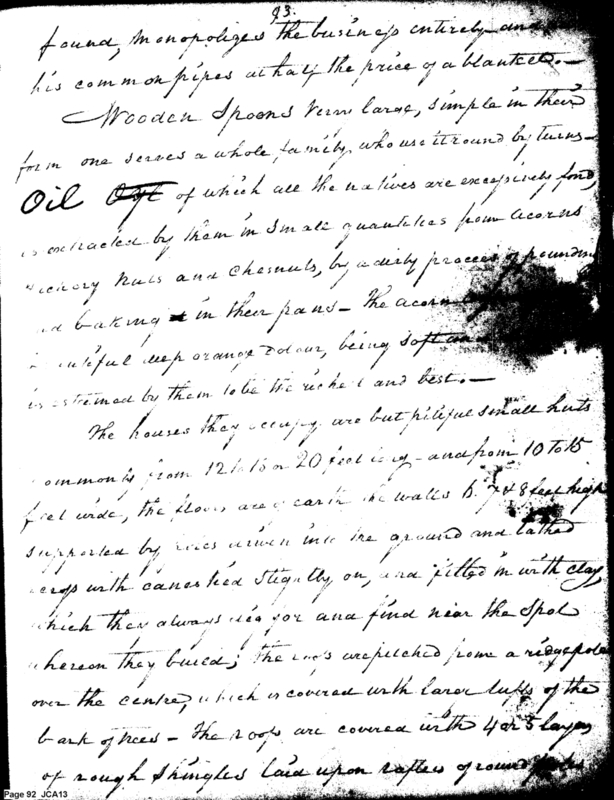 93.
found, monopolizes the business entirely and
his common pipes at half the price of a blanket.—
Wooden Spoons very large, simple in their
form one serves a whole family who use it round by turns—
Oil of which all the natives are excessively fond,
is extracted by them in small quantities from acorns
hickory nuts and chesnuts, by a dirty process of pounding
and baking in their pans— The acorn
beautiful deep orange colour, being soft
is esteemed by them to be the richest and best.—
The houses they occupy are but pitiful small huts
commonly from 12 to 18 or 20 feet long and from 10 to 15
feet wide, the floors are of earth the walls 6. 7 & 8 feet high
supported by poles driven into the ground and lathed
across with canes tied slightly on, and filled in with clay,
which they always dig for and find near the spot
whereon they build; the roofs are pitched from a ridgepole
over the centre, which is covered with large tufts of the
bark of trees— The roofs are covered with 4 or 5 layers
of rough shingles laid upon rafters of round poles
Page 92 JCA13